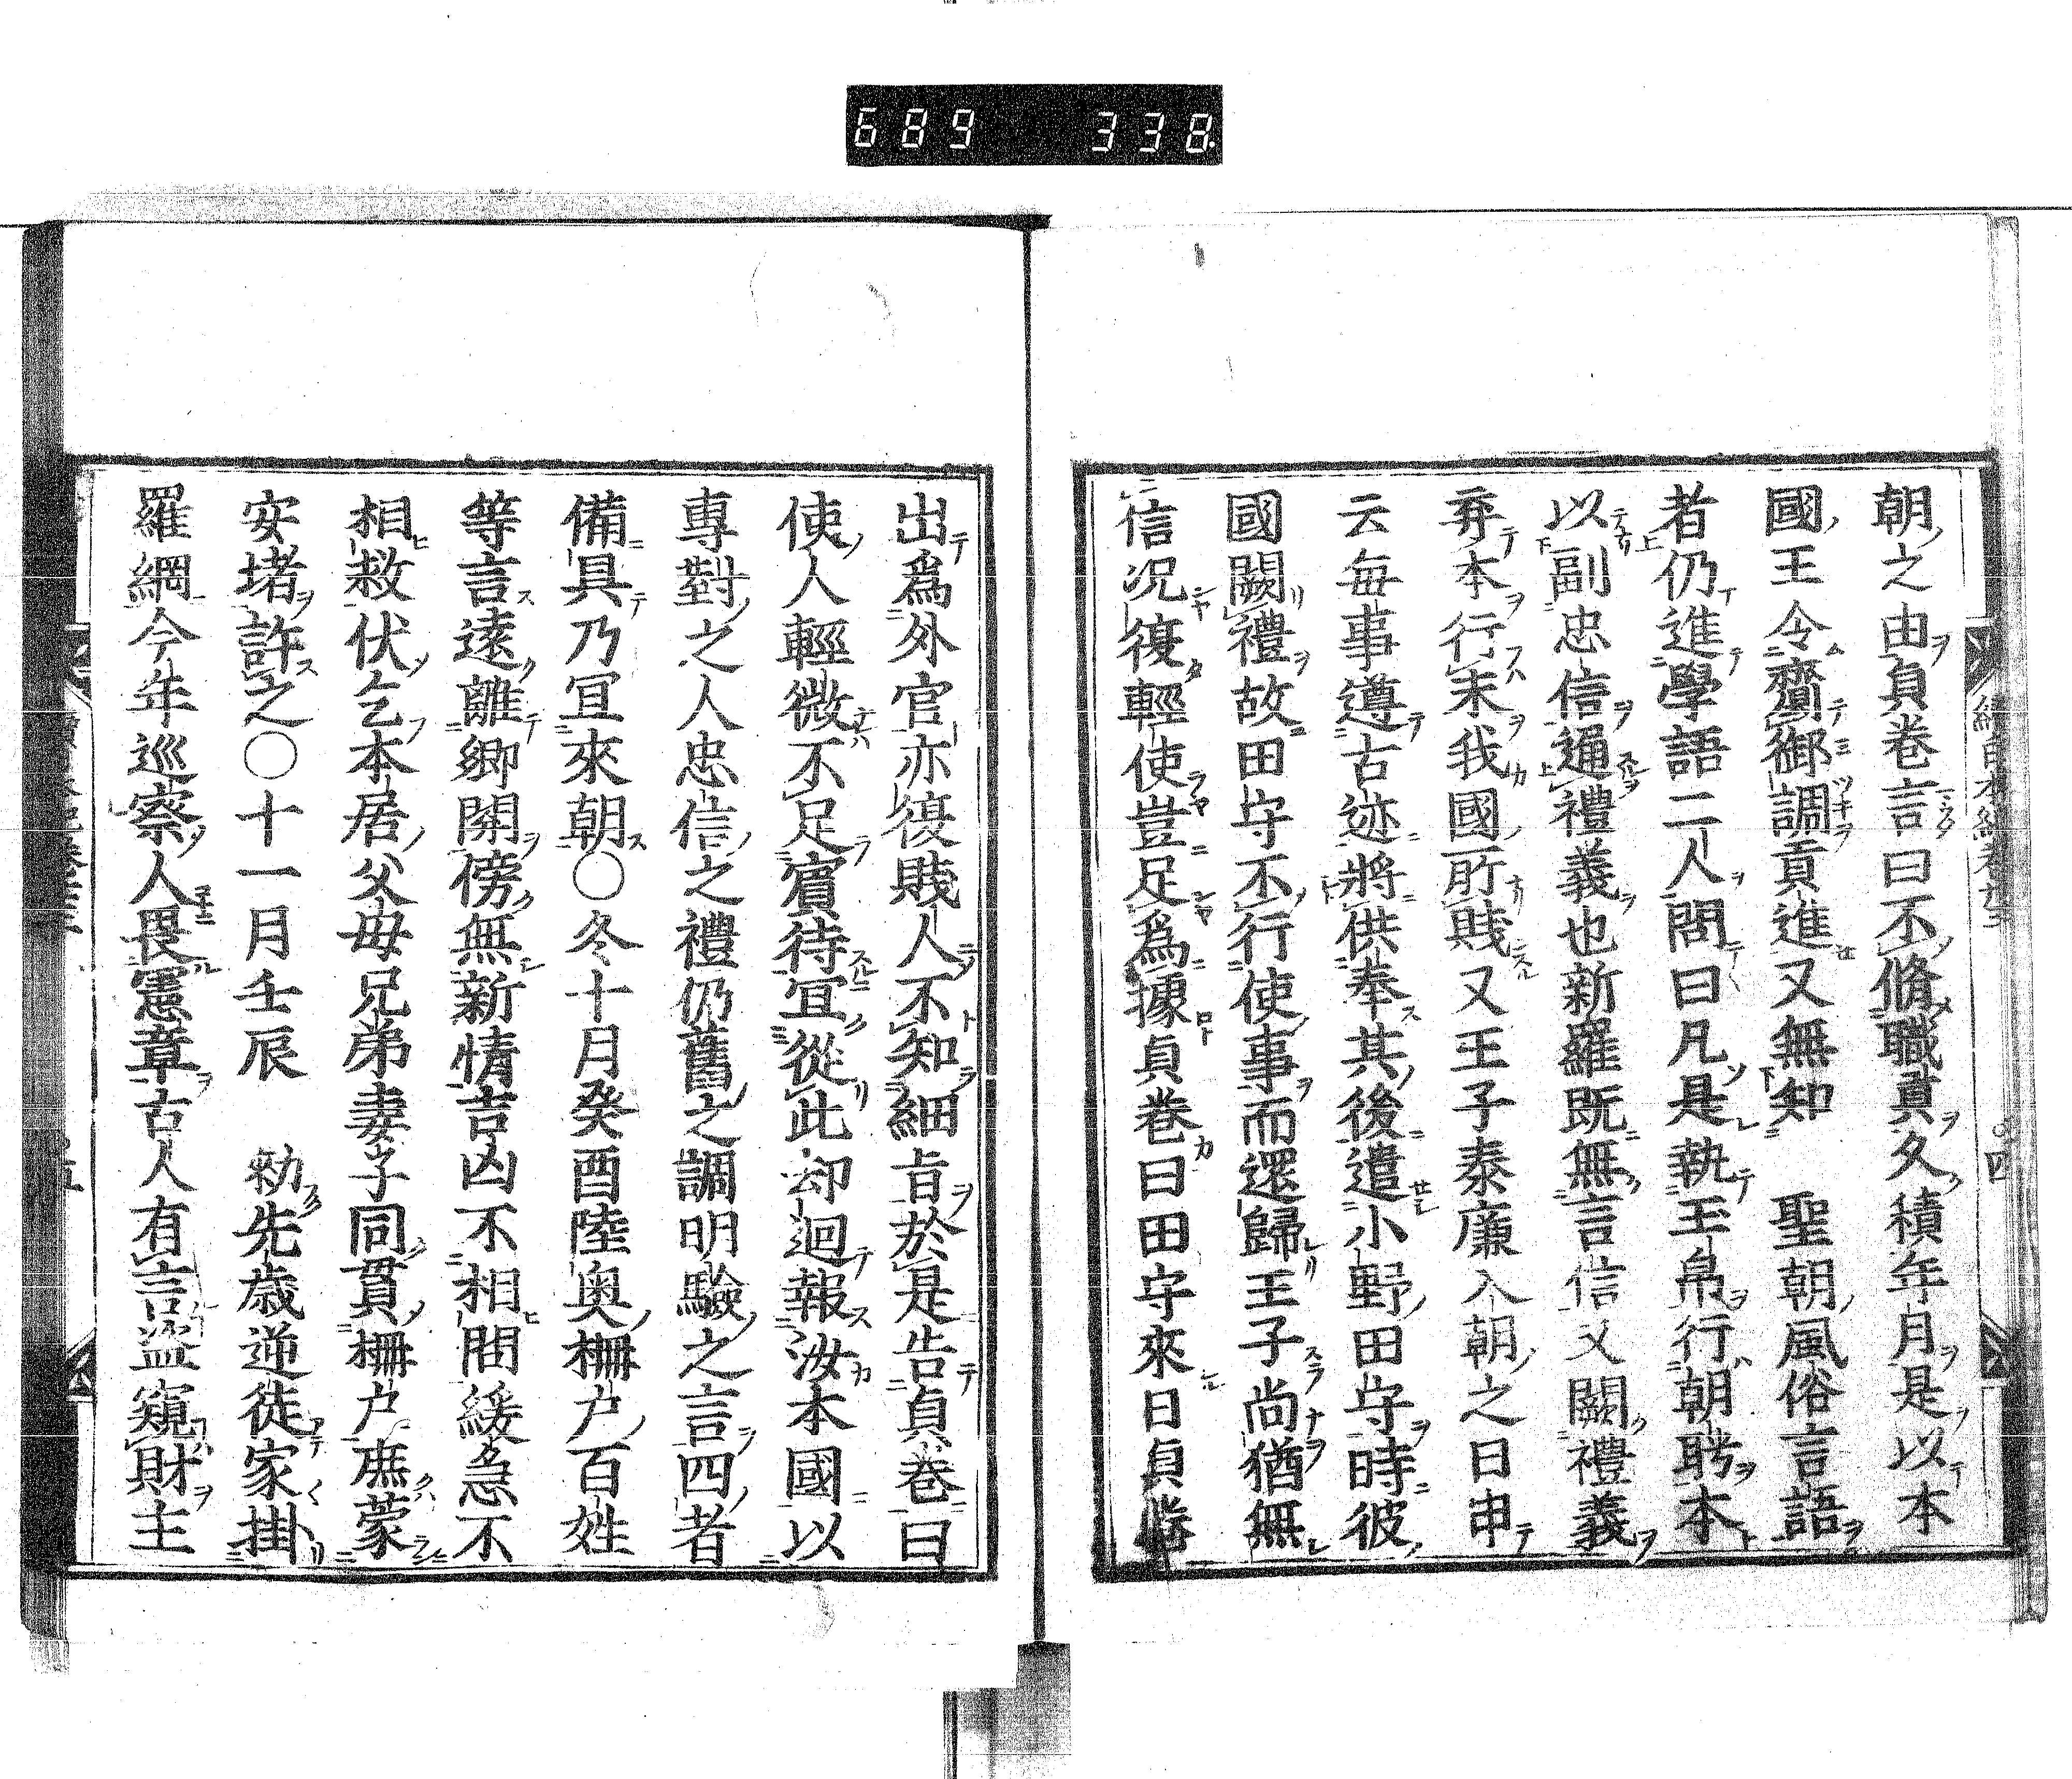 689 338
朝之由貞卷言曰不脩職貢久積年月是以本
國王令齎御調貢進又無知 聖朝風俗言語
者仍進學語二人問曰凡是執玉帛行朝聘本
以副忠信通禮義也新羅既無言信又闕禮義
弃本行末我國所賤又王子泰廉入朝之日申
云每事遵古迹將供奉其後遣小野田守時彼
國闕禮故田守不行使事而還歸王子尚猶無
信况復輕使豈足爲據貞卷曰田守來日貞卷
出爲外官亦復賤人不知細旨於是告貞卷曰
使人輕微不足賓待宜從此却迴報汝本國以
專對之人忠信之禮仍舊之調明驗之言四者
備具乃宜來朝○冬十月癸酉陸奥柵户百姓
等言遠離鄉關傍無新情吉凶不相問緩急不
相救伏乞本居父母兄弟妻子同貫柵户庶蒙
安堵許之○十一月壬辰 勑先歳逆徒家掛
羅網今年巡察人畏憲章古人有言盗窺財主